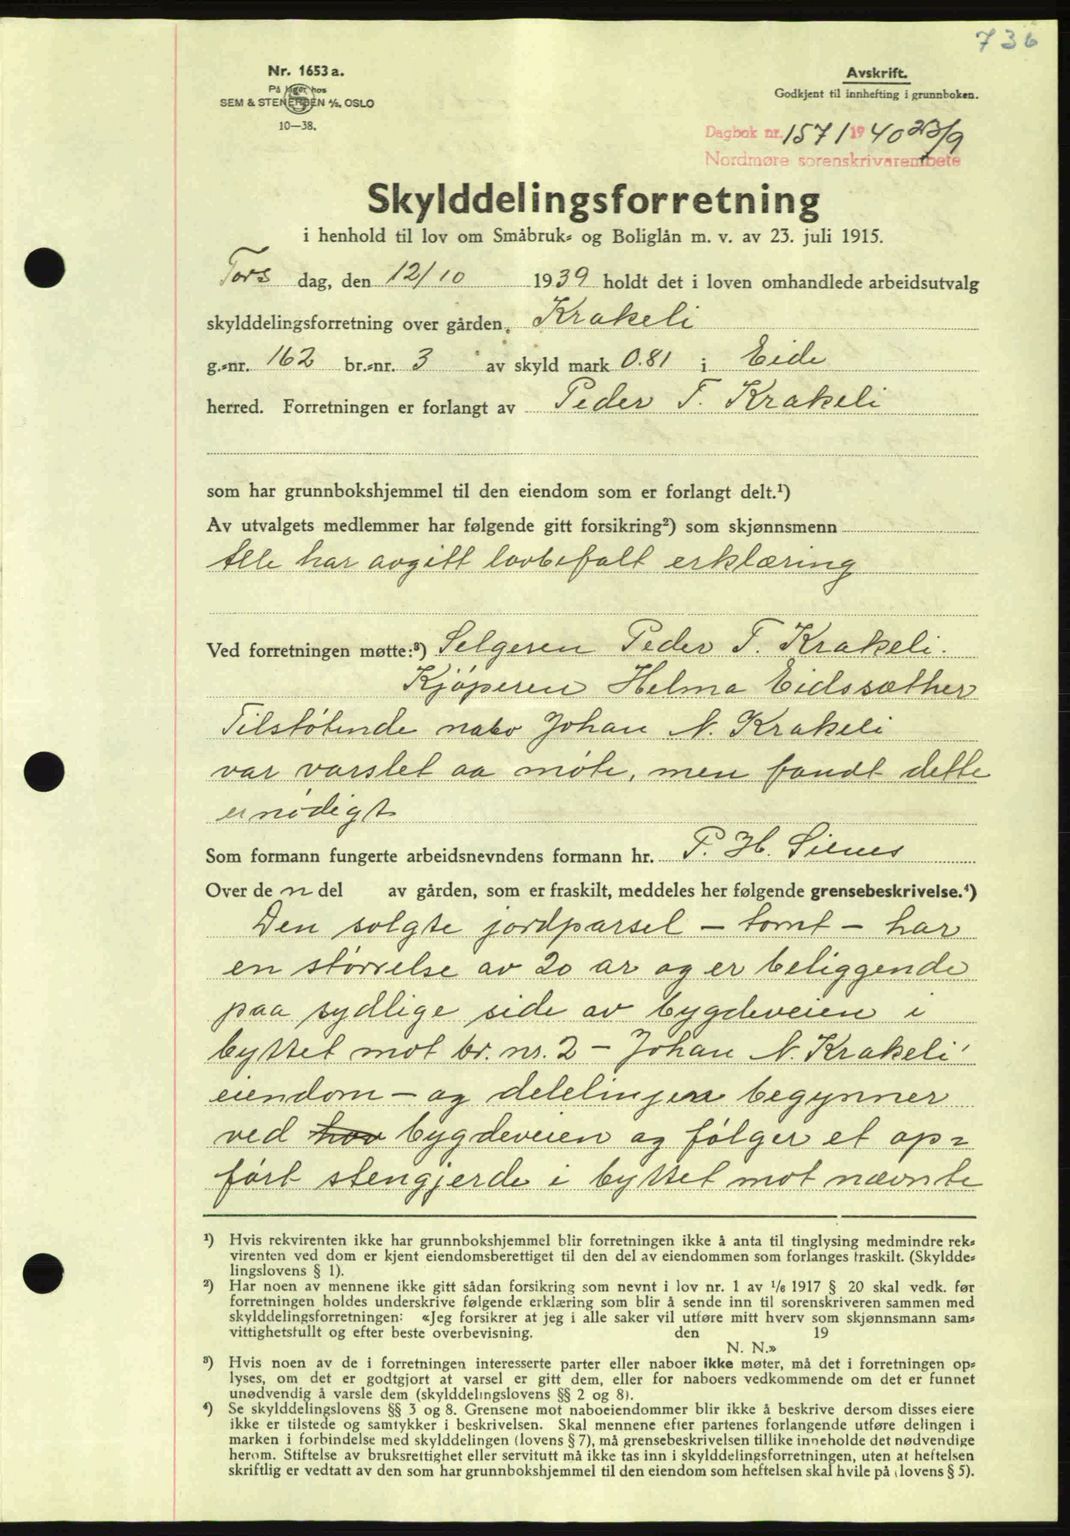 736
Nr. 1653 a.
På lager hos
SEM & STENERSEN A/S. OSLO
10—38.
Avskrift.
Godkjent til innhefting i grunnboken.
Dagbok nr. 1571 1940 23/9
Nordmøre sorenskrivarembete
Skylddelingsforretning
i henhold til lov om Småbruk- og Boliglån m. v. av 23. juli 1915.
Tors dag, den 12/10 1939 holdt det i loven omhandlede arbeidsutvalg
skylddelingsforretning over gården Krakeli
g.-nr. 162 br.-nr. 3 av skyld mark 0.81 i Eide
herred. Forretningen er forlangt av Peder T. Krakeli
som har grunnbokshjemmel til den eiendom som er forlangt delt.¹)
Av utvalgets medlemmer har følgende gitt forsikring²) som skjønnsmenn
Alle har avgitt lovbefalt erklæring
Ved forretningen møtte:³) Selgeren Peder T. Krakeli.
Kjøperen Helma Eidssæther
Tilstøtende nabo Johan N. Krakeli
var varslet aa møte, men fandt dette
unødigt
Som formann fungerte arbeidsnevndens formann hr. P. H. Silnes
Over de n del av gården, som er fraskilt, meddeles her følgende grensebeskrivelse.⁴)
Den solgte jordparsel — tomt — har
en størrelse av 20 ar og er beliggende
paa sydlige side av bygdeveien i
byttet mot br. nr. 2 — Johan N. Krakeli'
eiendom — og delelinjen begynner
ved bygdeveien og følger et op=
ført stengjerde i byttet mot nævnte
¹) Hvis rekvirenten ikke har grunnbokshjemmel blir forretningen ikke å anta til tinglysing medmindre rek-
virenten ved dom er kjent eiendomsberettiget til den del av eiendommen som forlanges fraskilt. (Skyldde-
lingslovens § 1).
²) Har noen av mennene ikke gitt sådan forsikring som nevnt i lov nr. 1 av 1/6 1917 § 20 skal vedk. før
forretningen holdes underskrive følgende erklæring som blir å sende inn til sorenskriveren sammen med
skylddelingsforretningen: «Jeg forsikrer at jeg i alle saker vil utføre mitt hverv som skjønnsmann sam-
vittighetsfullt og efter beste overbevisning. den 19
N. N.»
³) Hvis noen av de i forretningen interesserte parter eller naboer ikke møter, må det i forretningen op-
lyses, om det er godtgjort at varsel er gitt dem, eller for naboers vedkommende om det er funnet
unødvendig å varsle dem (skylddelingslovens §§ 2 og 8).
⁴) Se skylddelingslovens §§ 3 og 8. Grensene mot naboeiendommer blir ikke å beskrive dersom disses eiere
ikke er tilstede og samtykker i beskrivelsen. Skal mennene efter partenes forlangende utføre delingen i
marken i forbindelse med skylddelingen (lovens § 7), må grensebeskrivelsen tillike inneholde det nødvendige
herom. Stiftelse av bruksrettighet eller servitutt må ikke tas inn i skylddelingsforretningen, uten at heftelsen
skriftlig er vedtatt av den som har grunnbokshjemmel til den eiendom som heftelsen skal hvile på (lovens § 5).